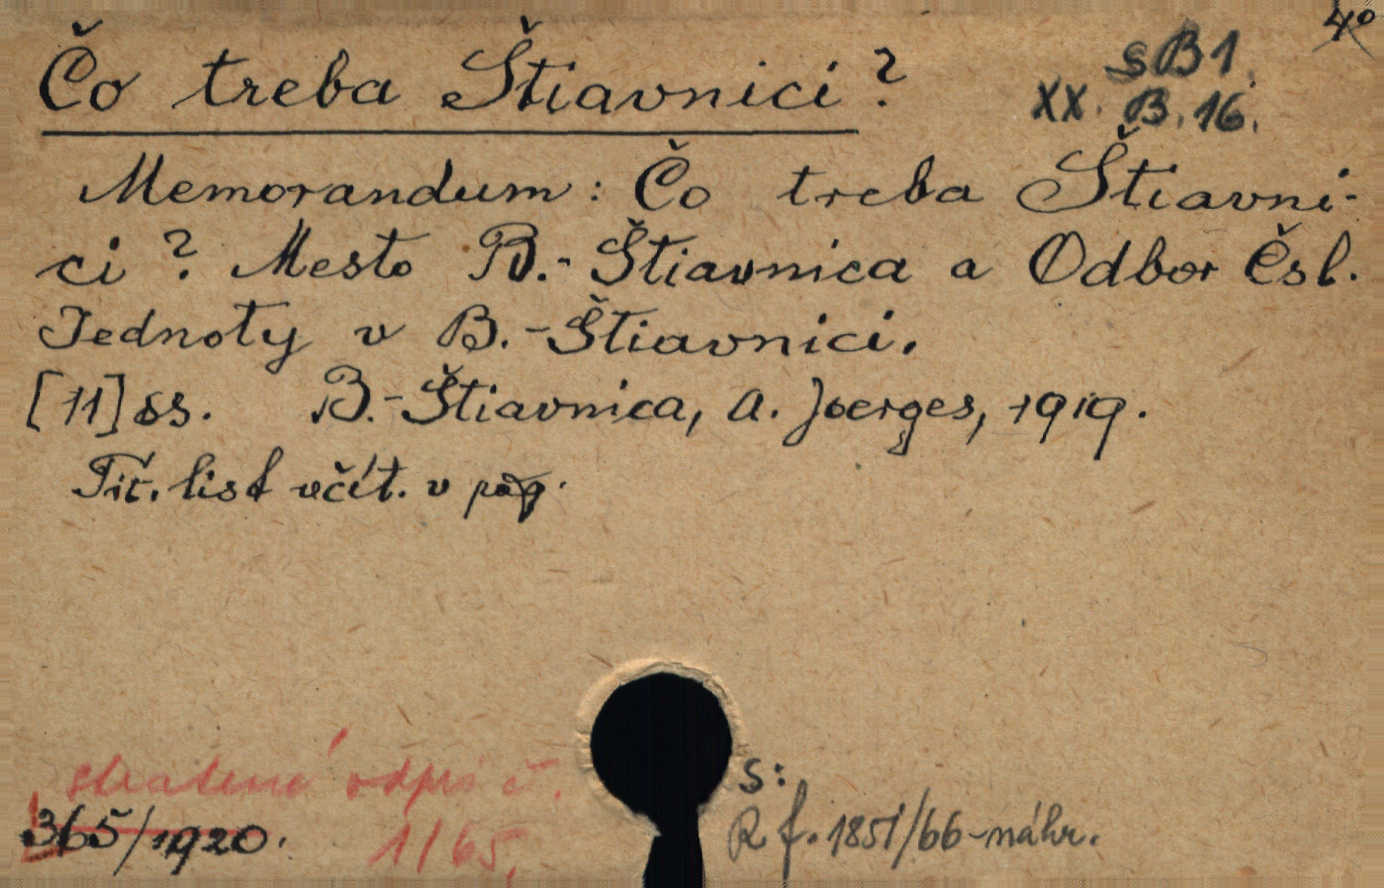 4°
Čo treba Štiavnici?
sB1.
XX. B. 16.
Memorandum: Čo treba Štiavni-
ci? Mesto B.-Štiavnica a Odbor Čsl.
Jednoty v B.-Štiavnici.
[11] ss. B.-Štiavnica, A. Joerges, 1919.
Tit. list včít. v pag.
stratené odpis č.
365/1920.
1/65.
S:
R f. 1851/66-náhr.